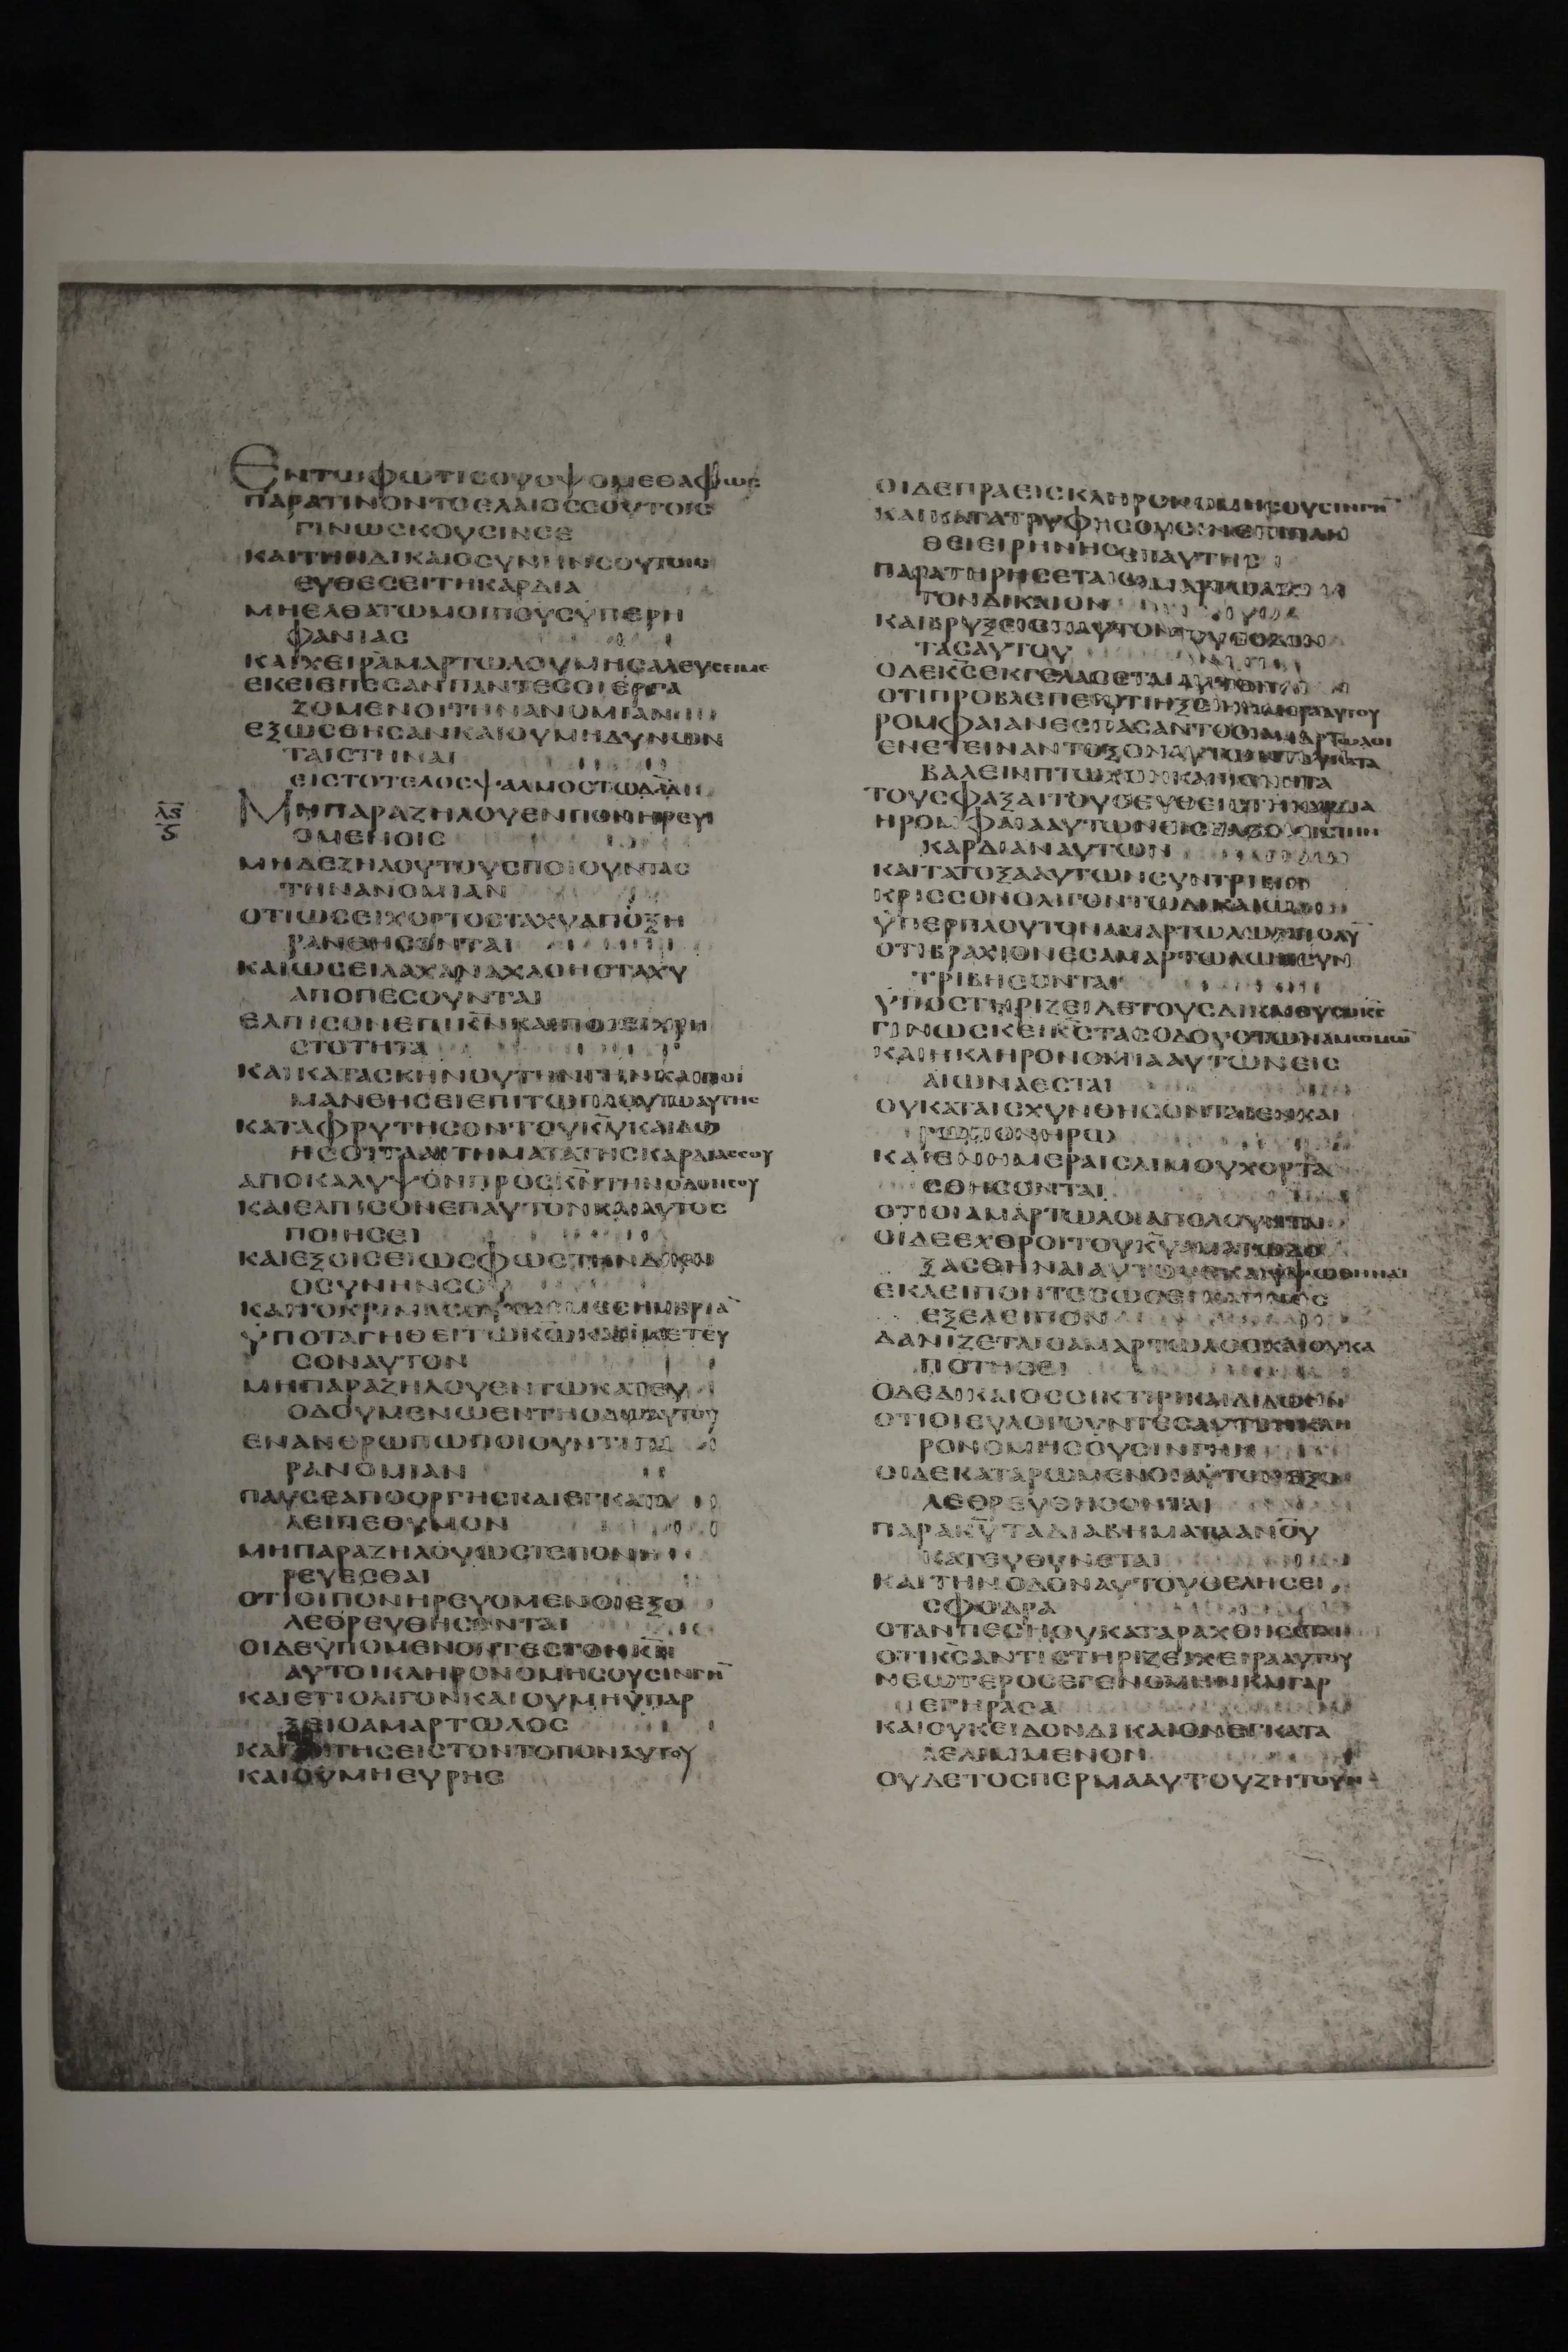 ΕΝΤΩΦΩΤΙCΟΥΟΨΟΜΕΘΑΦΩC
ΠΑΡΑΤΙΝΟΝΤΟΕΛΑΙΟCCΟΥΤΟΙC
ΓΙΝΩCΚΟΥCΙΝCΕ
ΚΑΙΤΗΝΔΙΚΑΙΟCΥΝΗΝCΟΥΤΟΙC
ΕΥΘΕCΕΙΤΗΚΑΡΔΙΑ
ΜΗΕΛΘΑΤΩΜΟΙΠΟΥCΫΠΕΡΗ
ΦΑΝΙΑC
ΚΑΙΧΕΙΡΑΜΑΡΤΩΛΟΥΜΗCΑΛΕΥCΕΙΜΕ
ΕΚΕΙΕΠΕCΑΝΠΑΝΤΕCΟΙΕΡΓΑ
ΖΟΜΕΝΟΙΤΗΝΑΝΟΜΙΑΝ
ΕΞΩCΘΗCΑΝΚΑΙΟΥΜΗΔΥΝΩΝ
ΤΑΙCΤΗΝΑΙ
ΕΙCΤΟΤΕΛΟCΨΑΛΜΟCΤΩΔΑΔ
λς
ς
ΜΗΠΑΡΑΖΗΛΟΥΕΝΠΟΝΗΡΕΥ
ΟΜΕΝΟΙC
ΜΗΔΕΖΗΛΟΥΤΟΥCΠΟΙΟΥΝΤΑC
ΤΗΝΑΝΟΜΙΑΝ
ΟΤΙΩCΕΙΧΟΡΤΟCΤΑΧΥΑΠΟΞΗ
ΡΑΝΘΗCΟΝΤΑΙ
ΚΑΙΩCΕΙΛΑΧΑΝΑΧΛΟΗCΤΑΧΥ
ΑΠΟΠΕCΟΥΝΤΑΙ
ΕΛΠΙCΟΝΕΠΙΚΝΚΑΙΠΟΙΕΙΧΡΗ
CΤΟΤΗΤΑ
ΚΑΙΚΑΤΑCΚΗΝΟΥΤΗΝΓΗΝΚΑΙΠΟΙ
ΜΑΝΘΗCΕΙΕΠΙΤΩΠΛΟΥΤΩΑΥΤΗC
ΚΑΤΑΦΡΥΤΗCΟΝΤΟΥΚΥΚΑΙΔΩ
ΗCΟΙΤΑΑΙΤΗΜΑΤΑΤΗCΚΑΡΔΙΑCCΟΥ
ΑΠΟΚΑΛΥΨΟΝΠΡΟCΚΝΤΗΝΟΔΟΝCΟΥ
ΚΑΙΕΛΠΙCΟΝΕΠΑΥΤΟΝΚΑΙΑΥΤΟC
ΠΟΙΗCΕΙ
ΚΑΙΕΞΟΙCΕΙΩCΦΩCΤΗΝΔΙΚΑΙ
ΟCΥΝΗΝCΟΥ
ΚΑΙΤΟΚΡΙΜΑCΟΥΩCΜΕCΗΜΒΡΙΑ
ΫΠΟΤΑΓΗΘΕΙΤΩΚΩΚΑΙΪΚΕΤΕΥ
CΟΝΑΥΤΟΝ
ΜΗΠΑΡΑΖΗΛΟΥΕΝΤΩΚΑΤΕΥ
ΟΔΟΥΜΕΝΩΕΝΤΗΟΔΩΑΥΤΟΥ
ΕΝΑΝΘΡΩΠΩΠΟΙΟΥΝΤΙΠΑ
ΡΑΝΟΜΙΑΝ
ΠΑΥCΕΑΠΟΟΡΓΗCΚΑΙΕΓΚΑΤΑ
ΛΕΙΠΕΘΥΜΟΝ
ΜΗΠΑΡΑΖΗΛΟΥΩCΤΕΠΟΝΗ
ΡΕΥΕCΘΑΙ
ΟΤΙΟΙΠΟΝΗΡΕΥΟΜΕΝΟΙΕΞΟ
ΛΕΘΡΕΥΘΗCΟΝΤΑΙ
ΟΙΔΕΫΠΟΜΕΝΟΝΤΕCΤΟΝΚΝ
ΑΥΤΟΙΚΛΗΡΟΝΟΜΗCΟΥCΙΝΓΗ
ΚΑΙΕΤΙΟΛΙΓΟΝΚΑΙΟΥΜΗΫΠΑΡ
ΞΕΙΟΑΜΑΡΤΩΛΟC
ΚΑΙΖΗΤΗCΕΙCΤΟΝΤΟΠΟΝΑΥΤΟΥ
ΚΑΙΟΥΜΗΕΥΡΗC
ΟΙΔΕΠΡΑΕΙCΚΛΗΡΟΝΟΜΗCΟΥCΙΝΓΗ
ΚΑΙΚΑΤΑΤΡΥΦΗCΟΥCΙΝΕΠΙΠΛΗ
ΘΕΙΕΙΡΗΝΗCΕΠΑΥΤΗC
ΠΑΡΑΤΗΡΗCΕΤΑΙΟΑΜΑΡΤΩΛΟC
ΤΟΝΔΙΚΑΙΟΝ
ΚΑΙΒΡΥΞΕΙΕΠΑΥΤΟΝΤΟΥCΟΔΟΝ
ΤΑCΑΥΤΟΥ
ΟΔΕΚCΕΚΓΕΛΑCΕΤΑΙΑΥΤΟΝ
ΟΤΙΠΡΟΒΛΕΠΕΙΟΤΙΗΞΕΙΗΗΜΕΡΑΑΥΤΟΥ
ΡΟΜΦΑΙΑΝΕCΠΑCΑΝΤΟΟΙΑΜΑΡΤΩΛΟΙ
ΕΝΕΤΕΙΝΑΝΤΟΞΟΝΑΥΤΩΝ
ΒΑΛΕΙΝΠΤΩΧΟΝΚΑΙΠΕΝΗΤΑ
ΤΟΥCΦΑΞΑΙΤΟΥCΕΥΘΕΙCΤΗΚΑΡΔΙΑ
ΗΡΟΜΦΑΙΑΑΥΤΩΝΕΙCΕΛΘΟΙΕΙCΤΗΝ
ΚΑΡΔΙΑΝΑΥΤΩΝ
ΚΑΙΤΑΤΟΞΑΑΥΤΩΝCΥΝΤΡΙΒΕΙΗ
ΚΡΙCCΟΝΟΛΙΓΟΝΤΩΔΙΚΑΙΩ
ΫΠΕΡΠΛΟΥΤΟΝΑΜΑΡΤΩΛΩΝΠΟΛΥ
ΟΤΙΒΡΑΧΙΟΝΕCΑΜΑΡΤΩΛΩΝCΥΝ
ΤΡΙΒΗCΟΝΤΑΙ
ΥΠΟCΤΗΡΙΖΕΙΔΕΤΟΥCΔΙΚΑΙΟΥCΟΚC
ΓΙΝΩCΚΕΙΚCΤΑCΟΔΟΥCΤΩΝΑΜΩΜΩ
ΚΑΙΗΚΛΗΡΟΝΟΜΙΑΑΥΤΩΝΕΙC
ΑΙΩΝΑΕCΤΑΙ
ΟΥΚΑΤΑΙCΧΥΝΘΗCΟΝΤΑΙΕΝΚΑΙ
ΡΩΠΟΝΗΡΩ
ΚΑΙΕΝΗΜΕΡΑΙCΛΙΜΟΥΧΟΡΤΑ
CΘΗCΟΝΤΑΙ
ΟΤΙΟΙΑΜΑΡΤΩΛΟΙΑΠΟΛΟΥΝΤΑΙ
ΟΙΔΕΕΧΘΡΟΙΤΟΥΚΥΑΜΑΤΩΔΟ
ΞΑCΘΗΝΑΙΑΥΤΟΥCΚΑΙΫΨΩΘΗΝΑΙ
ΕΚΛΕΙΠΟΝΤΕCΩCΕΙΚΑΠΝΟC
ΕΞΕΛΕΙΠΟΝ
ΔΑΝΙΖΕΤΑΙΟΑΜΑΡΤΩΛΟCΚΑΙΟΥΚΑ
ΠΟΤΙCΕΙ
ΟΔΕΔΙΚΑΙΟCΟΙΚΤΙΡΙΚΑΙΔΙΔΩCΙΝ
ΟΤΙΟΙΕΥΛΟΓΟΥΝΤΕCΑΥΤΟΝΚΛΗ
ΡΟΝΟΜΗCΟΥCΙΝΓΗΝ
ΟΙΔΕΚΑΤΑΡΩΜΕΝΟΙΑΥΤΟΝΕΞΟ
ΛΕΘΡΕΥΘΗCΟΝΤΑΙ
ΠΑΡΑΚΥΤΑΔΙΑΒΗΜΑΤΑΑΝΟΥ
ΚΑΤΕΥΘΥΝΕΤΑΙ
ΚΑΙΤΗΝΟΔΟΝΑΥΤΟΥΘΕΛΗCΕΙ
CΦΟΔΡΑ
ΟΤΑΝΠΕCΗΟΥΚΑΤΑΡΑΧΘΗCΕΤΑΙ
ΟΤΙΚCΑΝΤΙCΤΗΡΙΖΕΙΧΕΙΡΑΑΥΤΟΥ
ΝΕΩΤΕΡΟCΕΓΕΝΟΜΗΝΚΑΙΓΑΡ
ΕΓΗΡΑCΑ
ΚΑΙΟΥΚΕΙΔΟΝΔΙΚΑΙΟΝΕΓΚΑΤΑ
ΛΕΛΙΜΜΕΝΟΝ
ΟΥΔΕΤΟCΠΕΡΜΑΑΥΤΟΥΖΗΤΟΥΝ